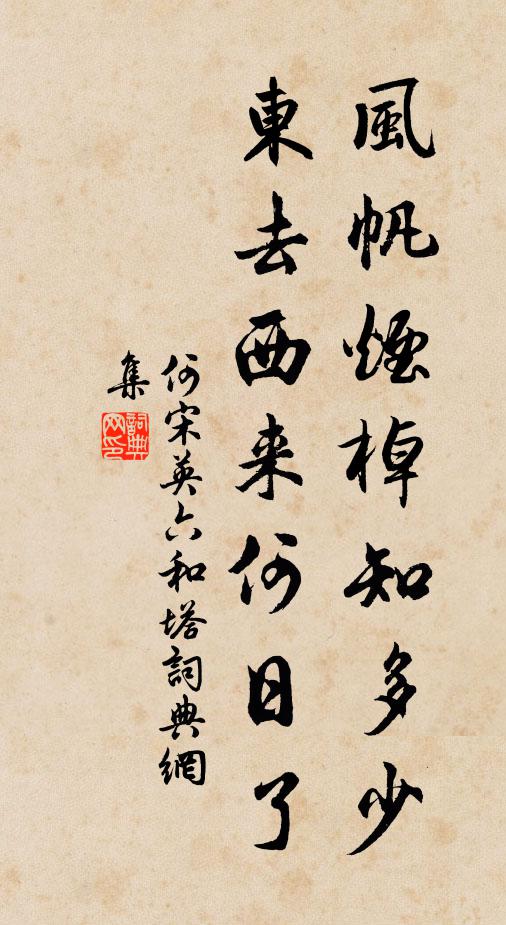 風帆煙棹知多少
東去西来何日了
何宋英六和塔詞典網
集
詞典网印